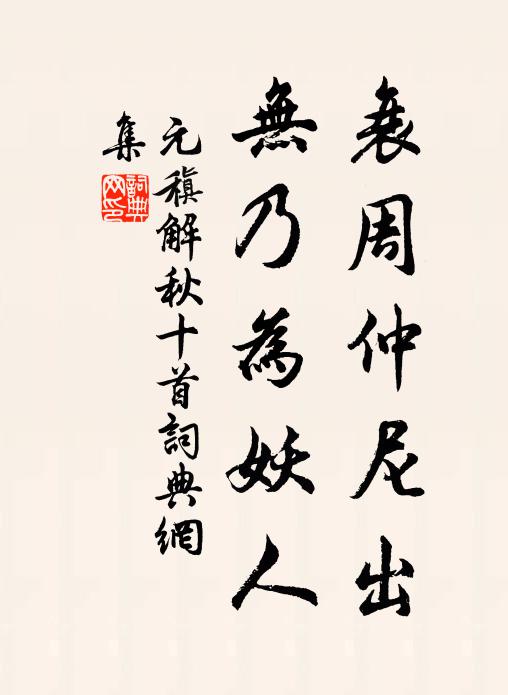 衰周仲尼出
無乃為妖人
元稹解秋十首詞典網
集
詞典
網印